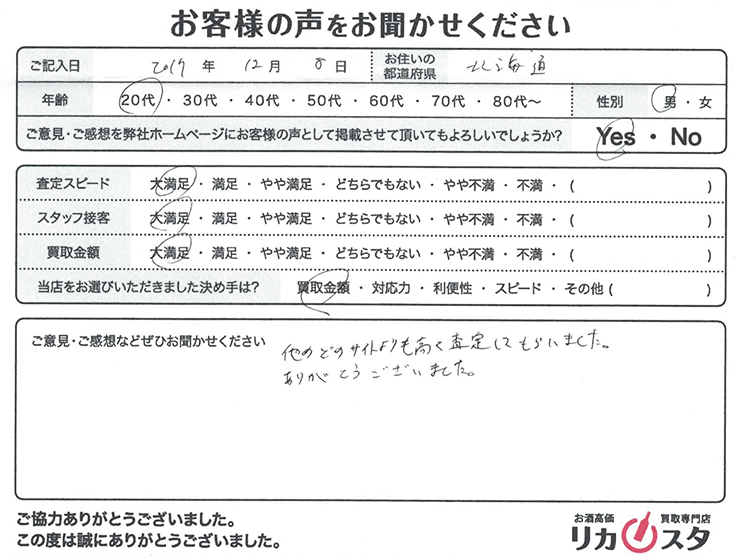 お客様の声をお聞かせください
ご記入日 2019 年 12 月 8 日 お住いの都道府県 北海道
年齢 20代 ・ 30代 ・ 40代 ・ 50代 ・ 60代 ・ 70代 ・ 80代〜 性別 男 ・ 女
ご意見・ご感想を弊社ホームページにお客様の声として掲載させて頂いてもよろしいでしょうか? Yes ・ No
査定スピード 大満足 ・ 満足 ・ やや満足 ・ どちらでもない ・ やや不満 ・ 不満 ・ ( )
スタッフ接客 大満足 ・ 満足 ・ やや満足 ・ どちらでもない ・ やや不満 ・ 不満 ・ ( )
買取金額 大満足 ・ 満足 ・ やや満足 ・ どちらでもない ・ やや不満 ・ 不満 ・ ( )
当店をお選びいただきました決め手は? 買取金額 ・ 対応力 ・ 利便性 ・ スピード ・ その他 ( )
ご意見・ご感想などぜひお聞かせください
他のどのサイトよりも高く査定してもらいました。
ありがとうございました。
ご協力ありがとうございました。
この度は誠にありがとうございました。
お酒高価 買取専門店
リカスタ